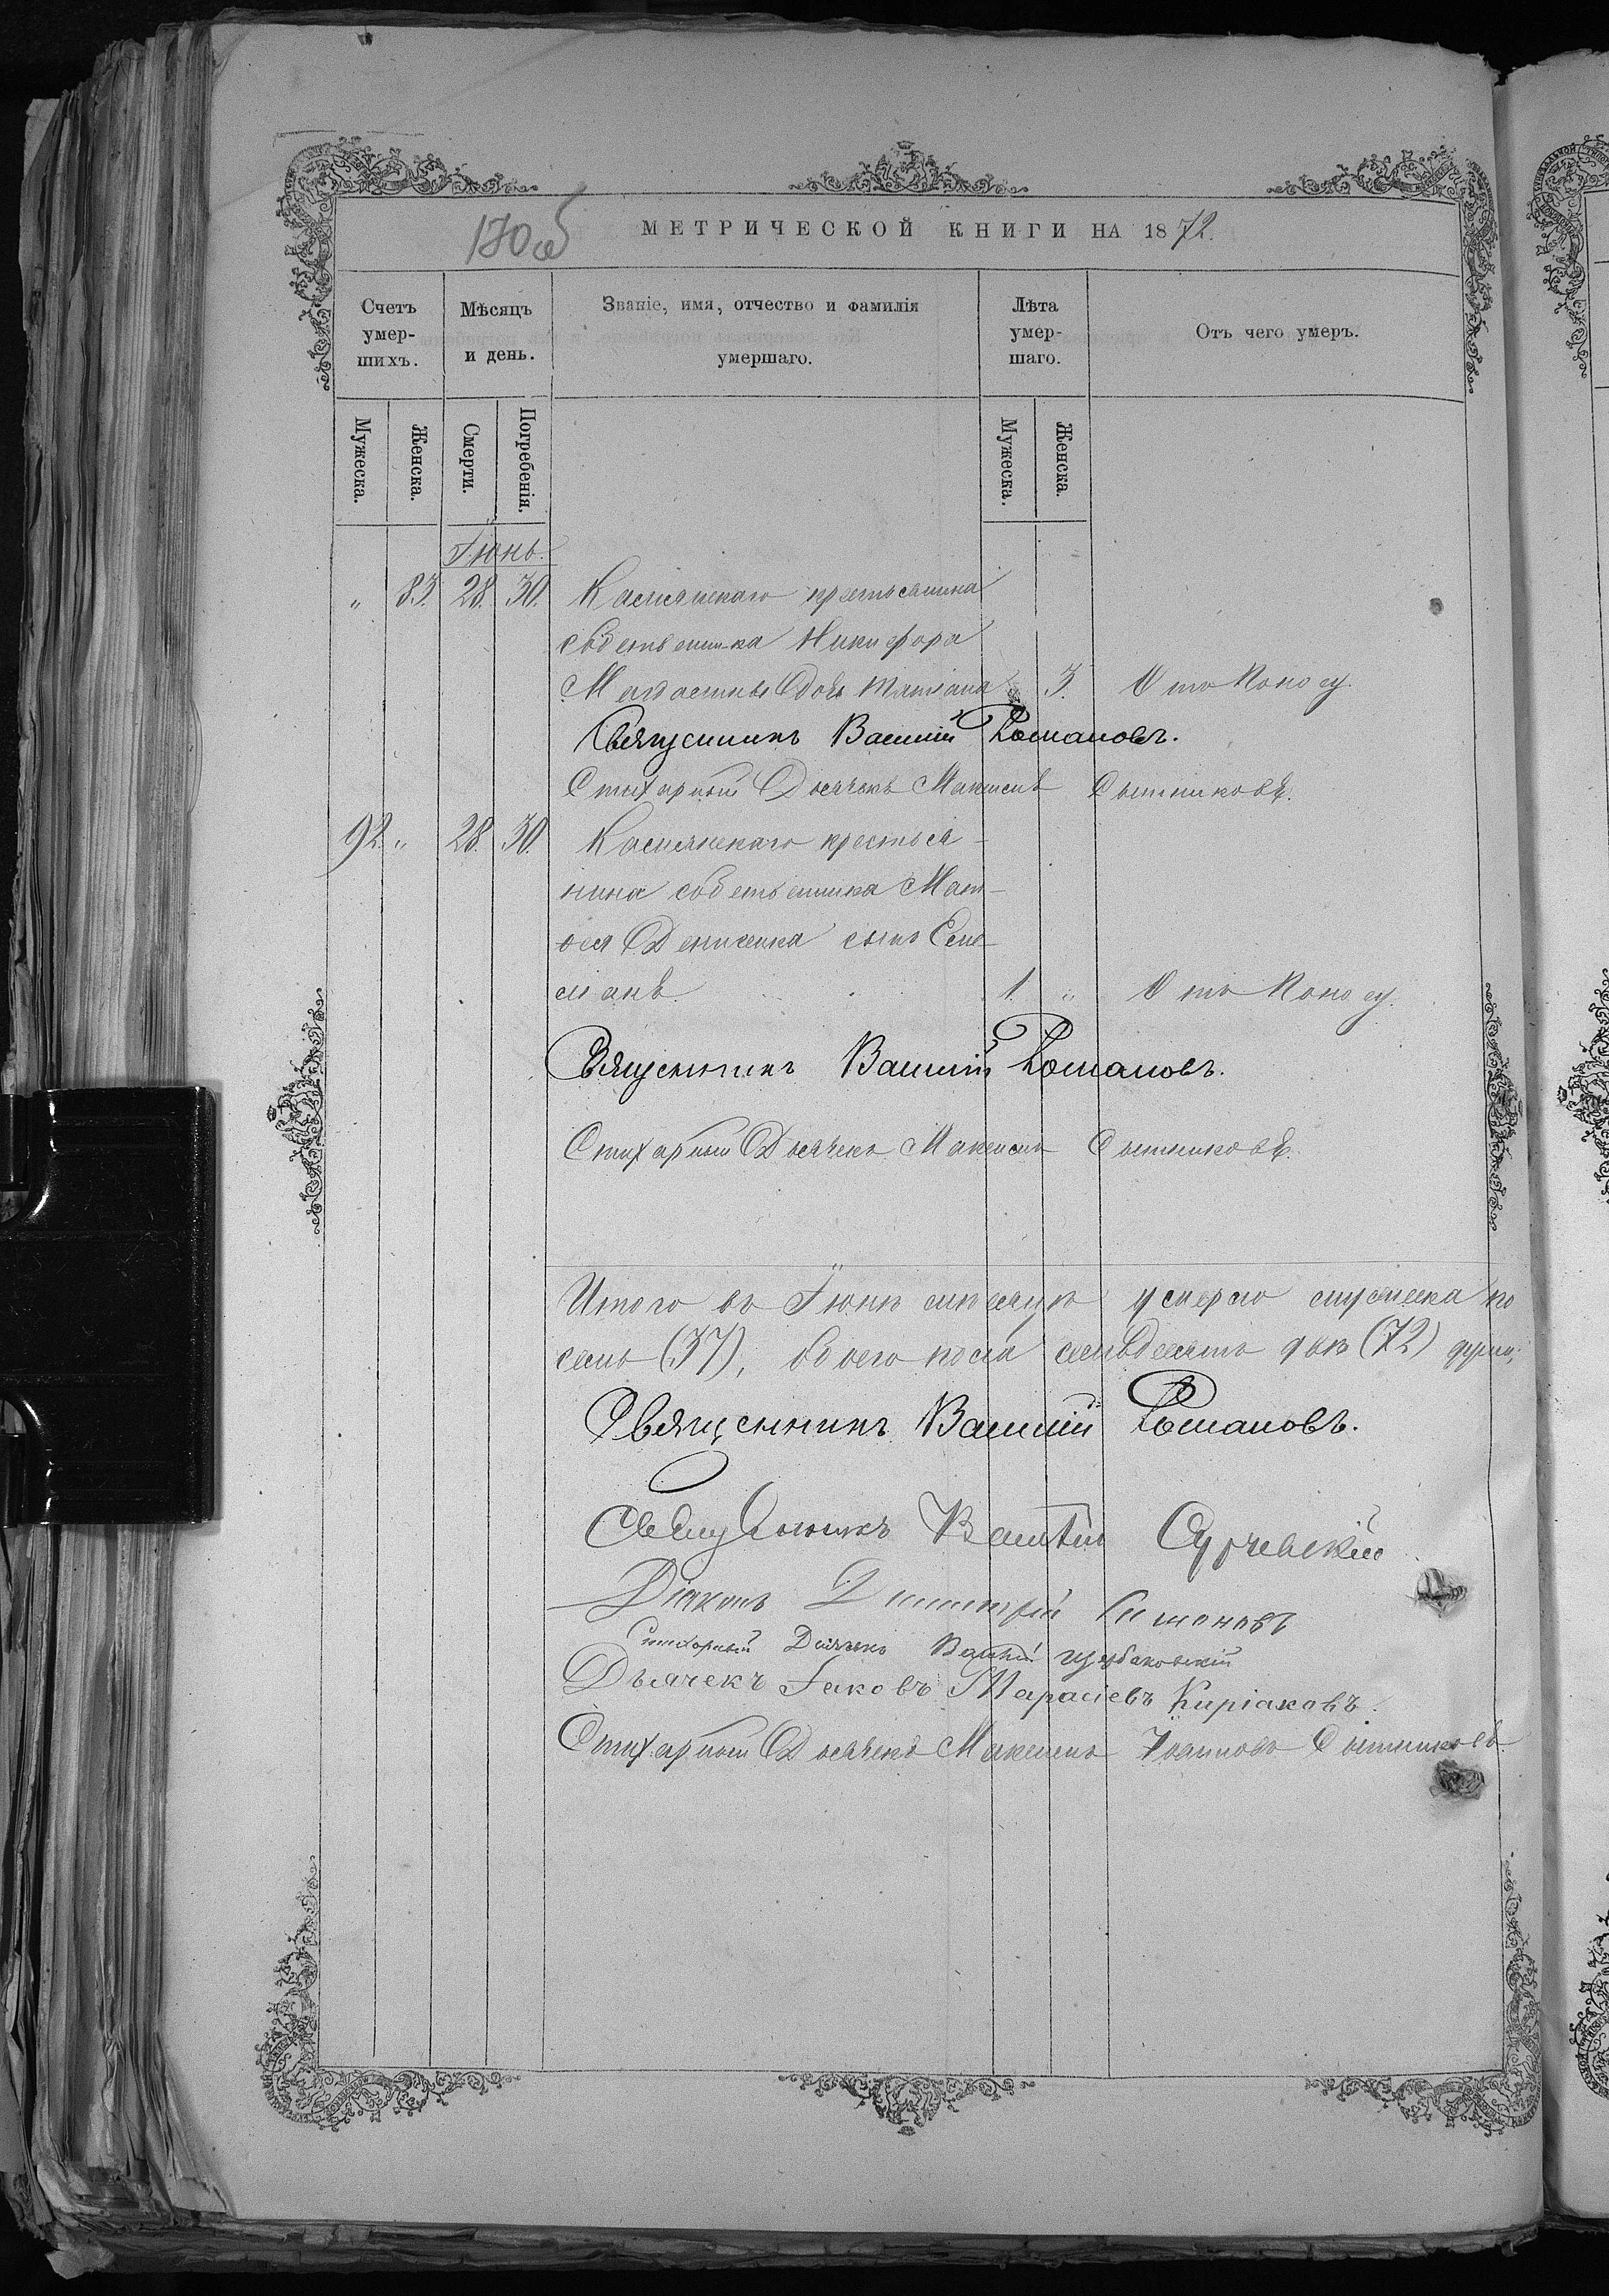 170об
МЕТРИЧЕСКОЙ КНИГИ НА 1872.
Счетъ умершихъ. Мѣсяцъ и день. Званіе, имя, отчество и фамилія умершаго. Лѣта умершаго. Отъ чего умеръ.
Мужеска. Женска. Смерти. Погребенія. Мужеска. Женска.
Іюнь.
„ 83. 28. 30. крестьянина
собственника Никифора
дочь Татіана „ 3. Отъ Поносу.
Священникъ Василій Романовъ.
Стихарный Дьячекъ Максимъ Сытниковъ.
92. „ 28. 30. крестья-
нина собственника Мат-
ѳея Денисенка сынъ Еме-
ліанъ. 1. „ Отъ Поносу.
Священникъ Василій Романовъ.
Стихарный Дьячекъ Максимъ Сытниковъ.
Итого въ Іюнѣ мѣсяцѣ умерло мужеска по
семь (37), обоего пола семьдесятъ двѣ (72) души;
Священникъ Василій Романовъ.
Священникъ
Діаконъ Димитрій
Стихарный Дьячекъ Василій Щербаковскій
Дьячекъ Іаковъ Тарасіевъ Киріаковъ.
Стихарный Дьячекъ Максимъ Іоанновъ Сытниковъ.